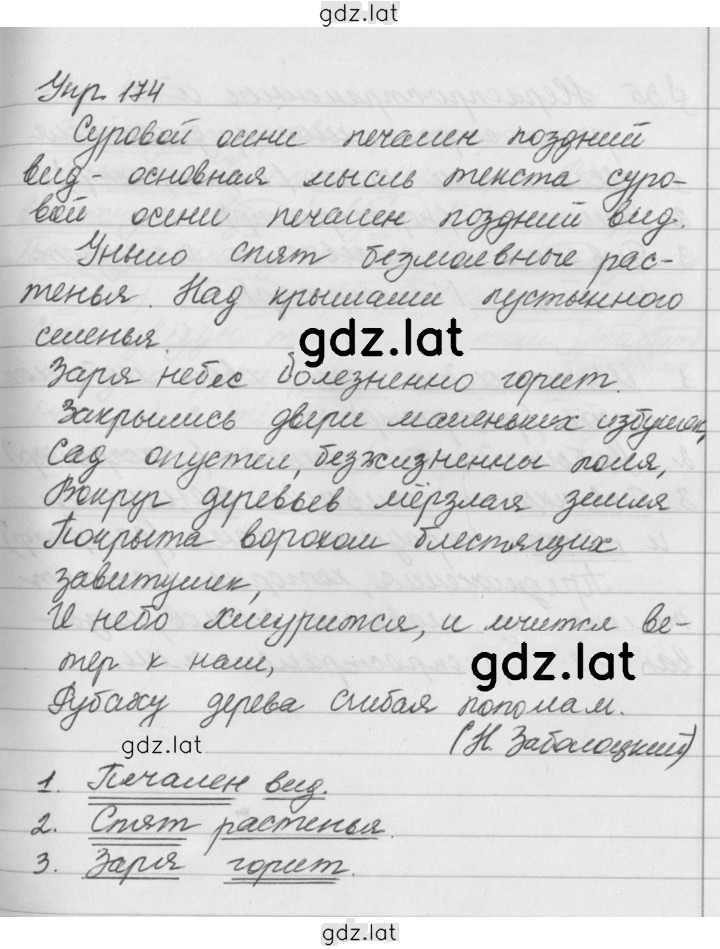 gdz.lat
Упр. 174
Суровой осени печален поздний
вид - основная мысль текста суро-
вой осени печален поздний вид.
Уныло спят безмолвные рас-
тенья. Над крышами пустынного
селенья
gdz.lat
Заря небес болезненно горит.
Закрылись двери маленьких избушек,
Сад опустел, безжизненны поля,
Вокруг деревьев мёрзлая земля
Покрыта ворохом блестящих
завитушек,
И небо хмурится, и мчится ве-
тер к нам,
gdz.lat
Рубаху дерева сгибая пополам.
(Н. Заболоцкий)
gdz.lat
1. Печален вид.
2. Спят растенья.
3. Заря горит.
gdz.lat